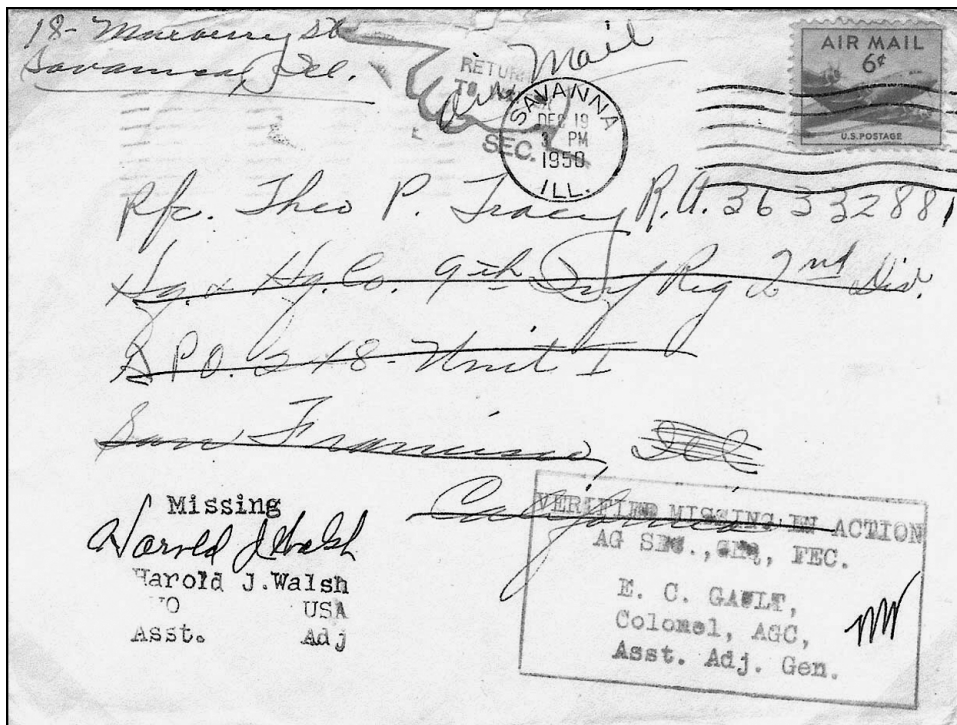 18- Mulberry St
Savanna, Ill.
Air Mail
RETURN
TO
SEC.
SAVANNA
DEC 19
3 PM
1950
ILL.
AIR MAIL
6¢
U.S. POSTAGE
Pfc. Theo P. Tracy R.A. 36332881
Hq. & Hq. Co. 9th Inf Reg 2nd Div.
A.P.O. 248- Unit I
San Francisco, Ill
California
Missing
Harold J Walsh
Harold J.Walsh
WO USA
Asst. Adj
VERIFIED MISSING IN ACTION
AG SEC., GHQ, FEC.
E. C. GAULT,
Colonel, AGC,
Asst. Adj. Gen.